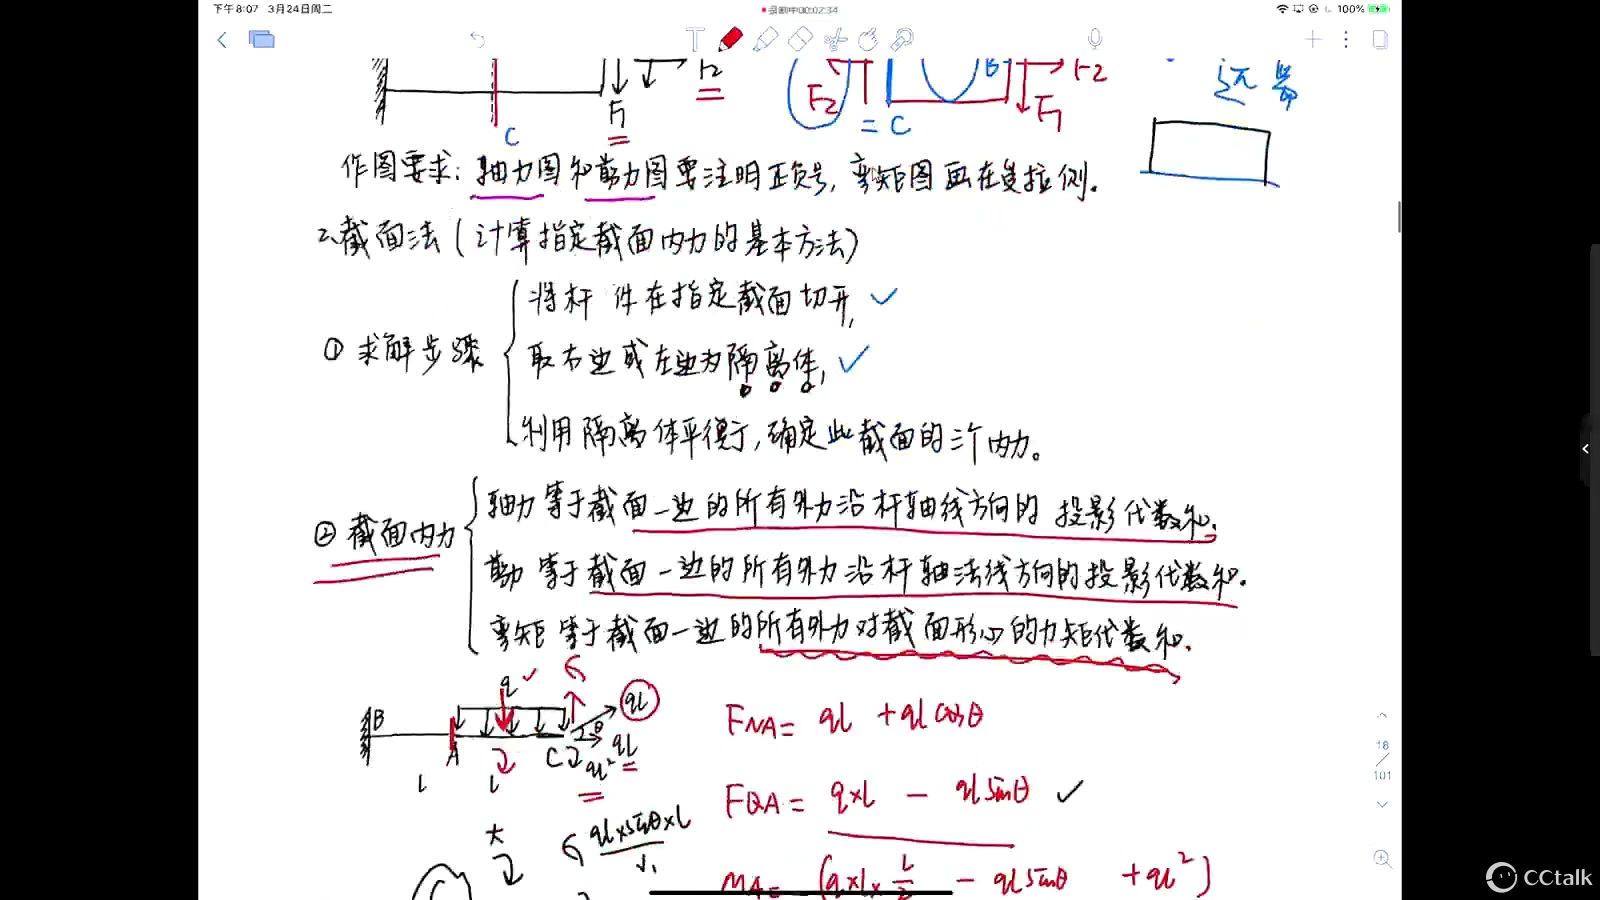 下午8:07 3月24日周二
录制中00:02:34
100%
F2
F1
C
F2
= C
B
F2
F1
远端
作图要求:轴力图和剪力图要注明正负号,弯矩图画在受拉侧.
2、截面法(计算指定截面内力的基本方法)
将杆件在指定截面切开,
① 求解步骤
取右边或左边为隔离体,
利用隔离体平衡,确定此截面的三个内力。
轴力等于截面一边的所有外力沿杆轴线方向的投影代数和.
② 截面内力
剪力等于截面一边的所有外力沿杆轴法线方向的投影代数和.
弯矩等于截面一边的所有外力对截面形心的力矩代数和.
q
ql
B
A
C
θ
ql
ql²
l
l
FNA= ql +qlcosθ
FQA= q×l - qlsinθ
大
ql×sinθ×l
MA= (q×l×l/2 - qlsinθ +ql²)
18
101
CCtalk